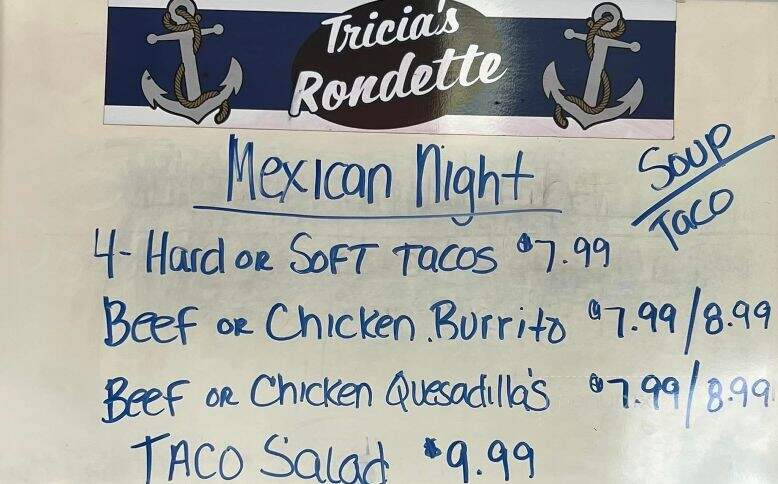 Tricia's
Rondette
Mexican Night
Soup
Taco
4- Hard OR SOFT TACOS $7.99
Beef OR Chicken Burrito $7.99/8.99
Beef OR Chicken Quesadilla's $7.99/8.99
TACO Salad $9.99